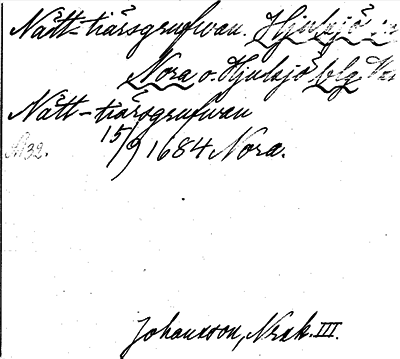 Nått-tiärsgrufwan. Hjulsjö
Nora o. Hjulsjö blg
Nått-tiärsgrufwan
15/9 1684 Nora.
A132.
Johansson, Norask. III.